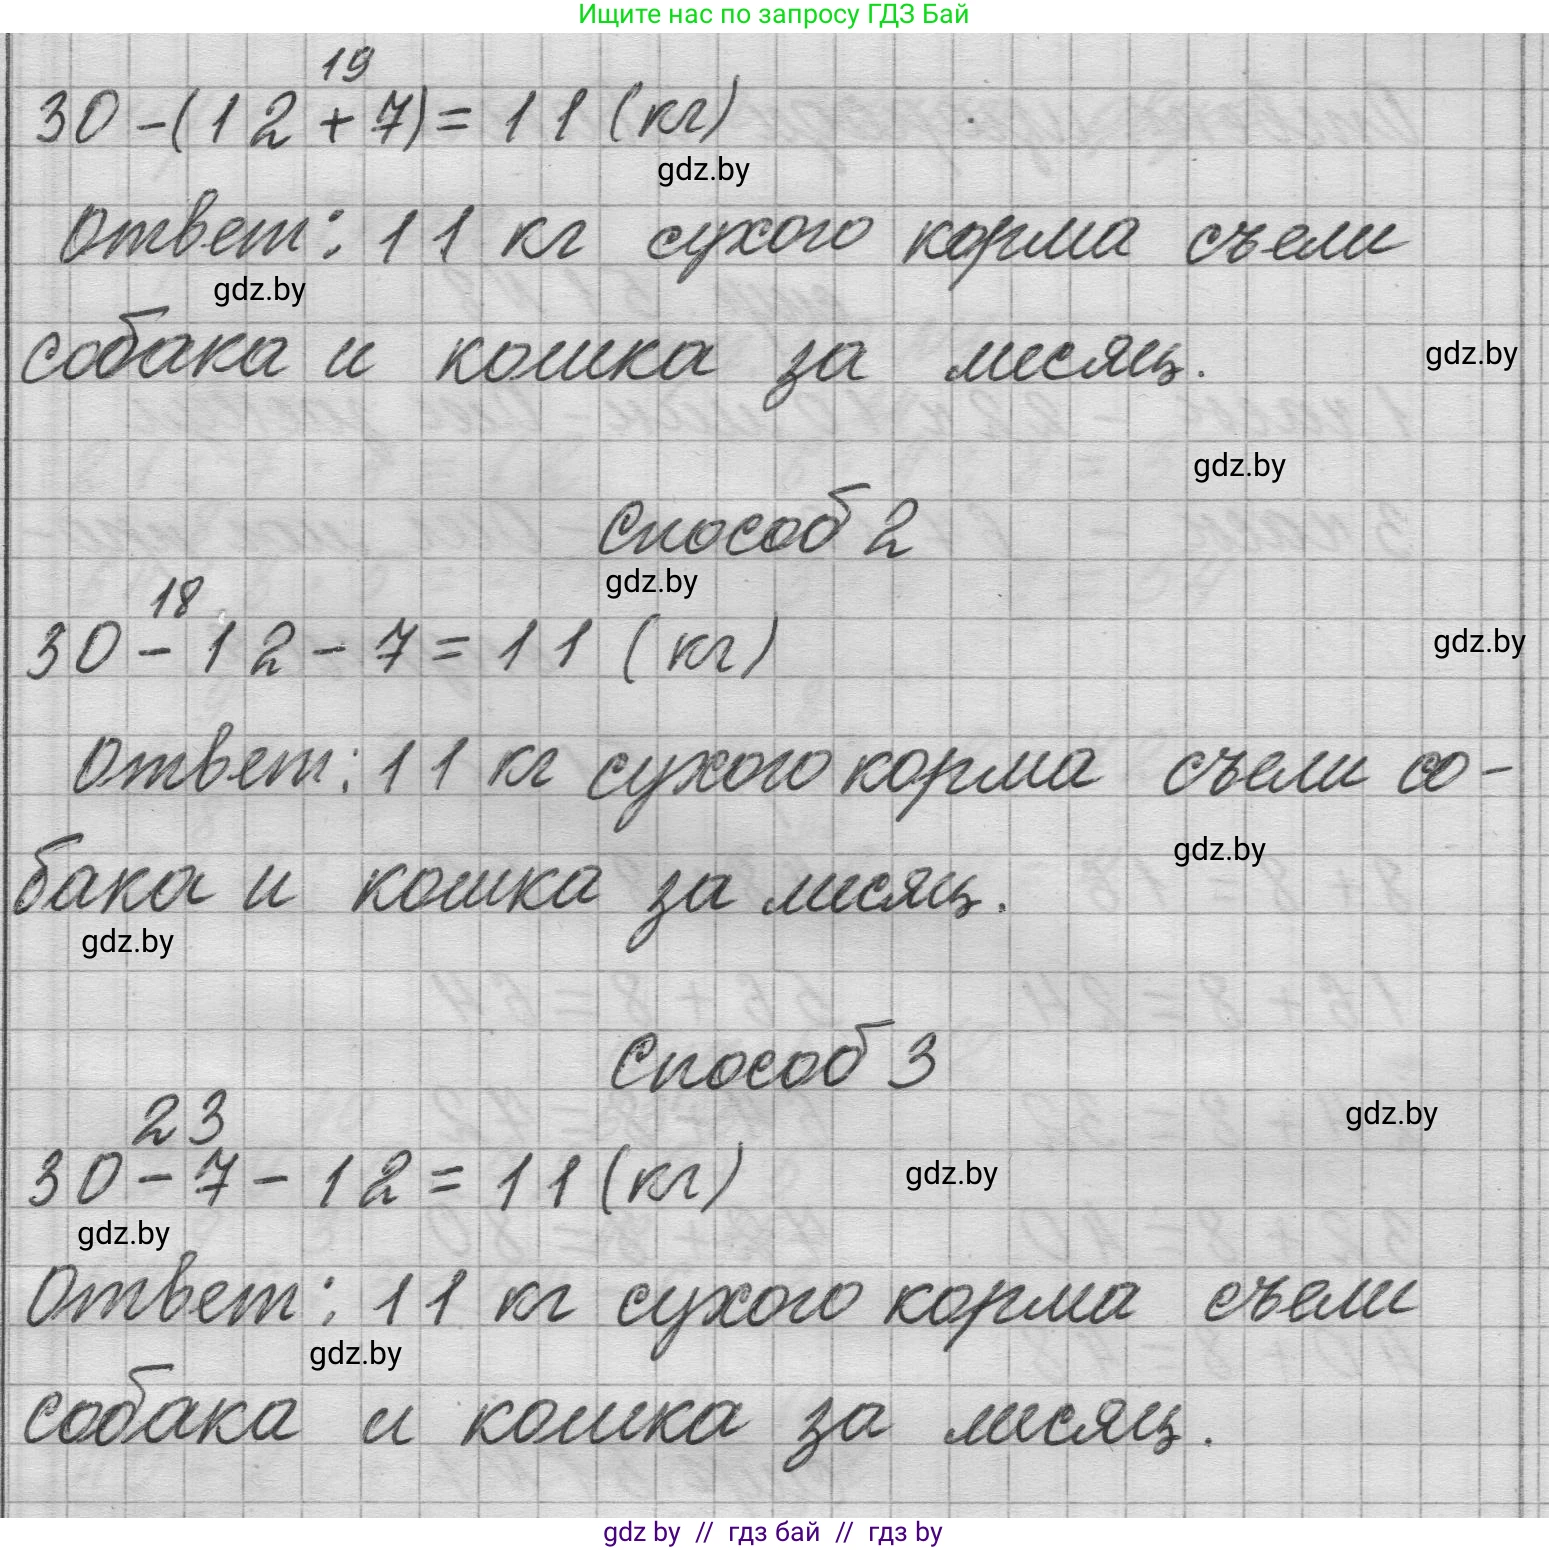 Ищите нас по запросу ГДЗ Бай
19
30-(12+7)=11 (кг)
gdz.by
Ответ: 11 кг сухого корма съели
gdz.by
собака и кошка за месяц.
gdz.by
gdz.by
Способ 2
gdz.by
18
30-12-7=11 (кг)
gdz.by
Ответ: 11 кг сухого корма съели со-
gdz.by
бака и кошка за месяц.
gdz.by
Способ 3
23
gdz.by
30-7-12=11 (кг)
gdz.by
gdz.by
Ответ: 11 кг сухого корма съели
gdz.by
собака и кошка за месяц.
gdz by // гдз бай // гдз by